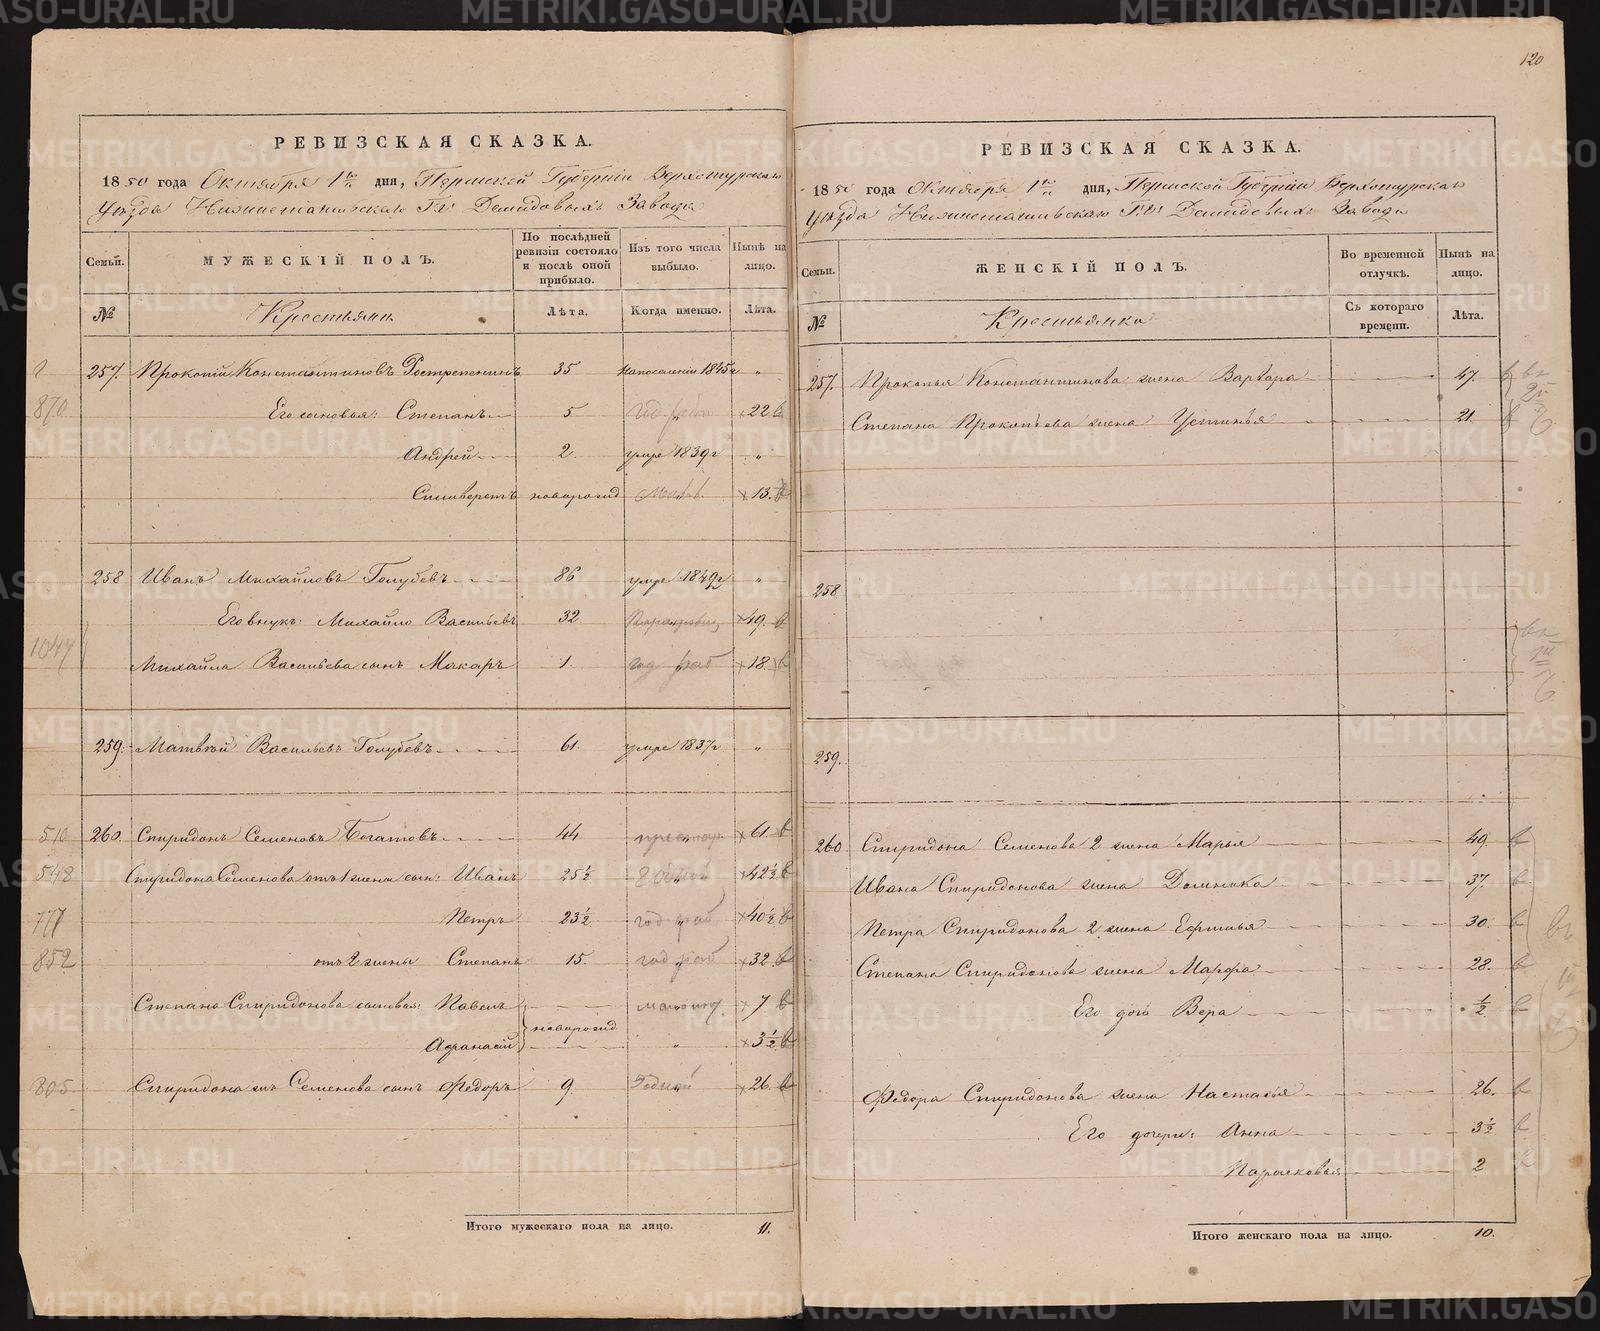 120
РЕВИЗСКАЯ СКАЗКА.
1850 года Октября 1го дня, Пермской Губернiи Верхотурскаго
Уѣзда Нижнетагильскаго Гг. Демидовыхъ Завода
Семьи. МУЖЕСКIЙ ПОЛЪ. По послѣдней ревизiи состояло и послѣ оной прибыло. Изъ того числа выбыло. Нынѣ на лицо.
№ Крестьяни Лѣта. Когда именно. Лѣта.
257. Прокопiй Константиновъ 35 1845г "
870 Его сыновья: Степанъ 5 год раб 22
Андрей 2 умре 1839г "
новорожд 13
258 Иванъ Михайловъ Голубевъ 86 умре 1849г "
Его внукъ: Михайло Васильевъ 32 49
1047 Михайла Васильева сынъ Макаръ 1 год раб 18
259. Матвѣй Васильевъ Голубевъ 61 умре 1837г "
510 260. Спиридонъ Семеновъ Богатовъ 44 престар. 61
548 Спиридона Семенова отъ 1 жены сын: Иванъ 25½ годной 42½
777 Петръ 23½ год раб 40½
852 отъ 2 жены Степанъ 15. год раб 32
Степана Спиридонова сыновья: Павелъ новорожд 7
Афанасiй " 3½
805 Спиридона жъ Семенова сынъ Федоръ 9. Годной 26
Итого мужескаго пола на лицо. 11.
РЕВИЗСКАЯ СКАЗКА.
1850 года Октября 1го дня, Пермской Губернiи Верхотурскаго
Уѣзда Нижнетагильскаго Гг. Демидовыхъ Завода
Семьи. ЖЕНСКIЙ ПОЛЪ. Во временной отлучкѣ. Нынѣ на лицо.
№ Крестьянка Съ котораго времени. Лѣта.
257. Прокопья Константинова жена Варвара 47.
Степана Прокопьева жена Устинья 21.
258
259.
260 Спиридона Семенова 2 жена Марья 49.
Ивана Спиридонова жена Домника 37.
Петра Спиридонова 2 жена Ефимья 30.
Степана Спиридонова жена Марфа 28.
Его дочь Вера ½
Федора Спиридонова жена Настасья 26.
Его дочери: Анна 3½
Парасковья 2
Итого женскаго пола на лицо. 10.
METRIKI.GASO-URAL.RU